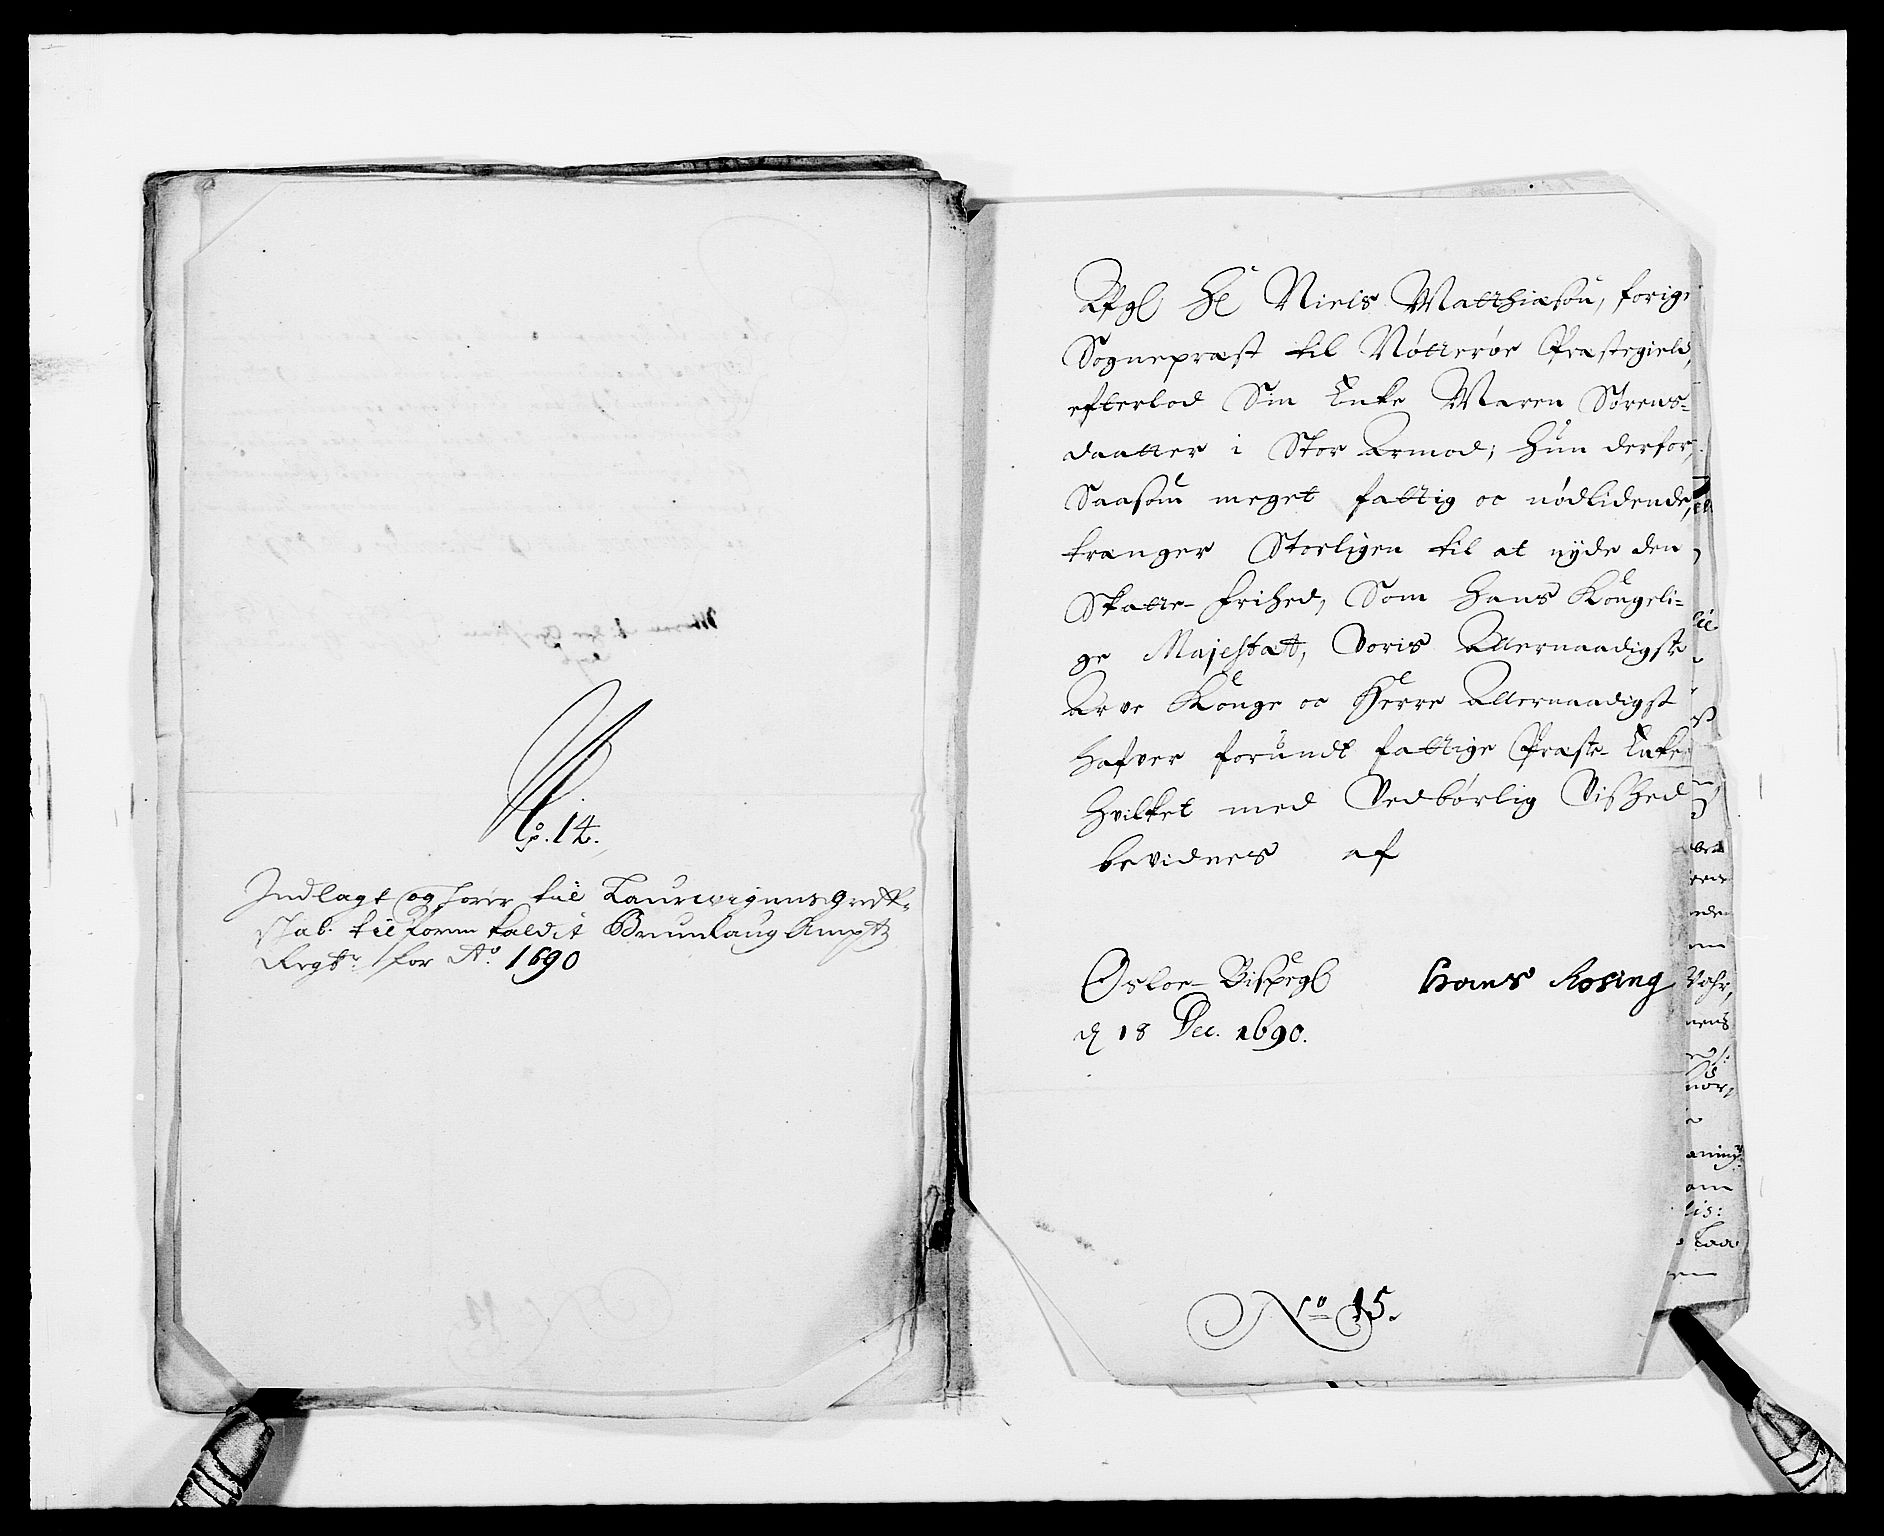 No. 14.
Indlagt og hører til Laurwigens Greff-
skab tilforn kaldit Brunlaug Ampt
Regsk. for Ao. 1690
Afgl Hr Niels Matthiasøn, forige
Sognepræst til Nøtterøe Præstegield,
efterlod Sin Enke Maren Sørens-
daatter i Stor Armod; Hun derfor,
Saasom meget fattig oc nødlidende,
trænger Storligen til at nyde den
Skatte-frihed, Som Hans Kongeli-
ge Majestæt, Voris Allernaadigste
Arve Konge oc Herre Allernaadigst
hafver forundt fattige Præste-Enker
Hvilket med Vedbørlig Vished
bevidnes af
Osloe-Bispegl Hans Rosing
d 18 Dec. 1690.
No 15.